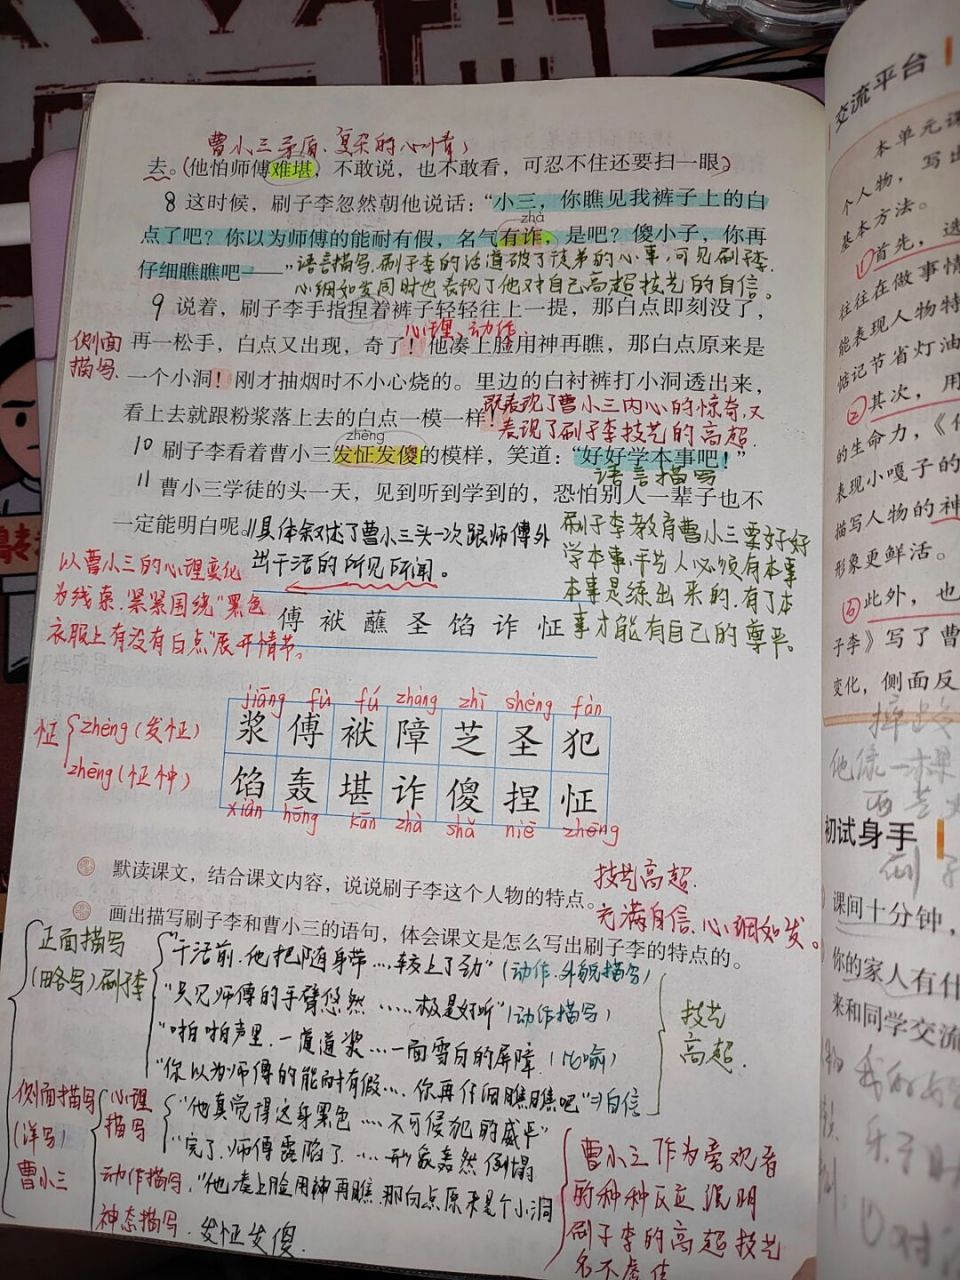 曹小三矛盾、复杂的心情
去。(他怕师傅难堪，不敢说，也不敢看，可忍不住还要扫一眼)
8 这时候，刷子李忽然朝他说话：“小三，你瞧见我裤子上的白
zhà
点了吧？你以为师傅的能耐有假，名气有诈，是吧？傻小子，你再
仔细瞧瞧吧——”
语言描写，刷子李的话道破了徒弟的心事，可见刷子李
心细如发同时也表现了他对自己高超技艺的自信。
9 说着，刷子李手指捏着裤子轻轻往上一提，那白点即刻没了，
心理、动作
侧面
描写
再一松手，白点又出现，奇了！他凑上脸用神再瞧，那白点原来是
一个小洞！刚才抽烟时不小心烧的。里边的白衬裤打小洞透出来，
看上去就跟粉浆落上去的白点一模一样！
既表现了曹小三内心的惊奇，又
表现了刷子李技艺的高超。
zhēng
10 刷子李看着曹小三发怔发傻的模样，笑道：“好好学本事吧！”
语言描写
11 曹小三学徒的头一天，见到听到学到的，恐怕别人一辈子也不
一定能明白呢。
//具体叙述了曹小三头一次跟师傅外
出干活的所见所闻。
刷子李教育曹小三要好好
学本事，手艺人必须有本事
本事是练出来的，有了本
事才能有自己的尊严。
以曹小三的心理变化
为线索，紧紧围绕“黑色
衣服上有没有白点”展开情节。
傅 袱 蘸 圣 馅 诈 怔
jiāng fù fú zhàng zhī shèng fàn
浆 傅 袱 障 芝 圣 犯
馅 轰 堪 诈 傻 捏 怔
xiàn hōng kān zhà shǎ niē zhēng
怔
zhèng (发怔)
zhēng (怔忡)
默读课文，结合课文内容，说说刷子李这个人物的特点。
技艺高超.
充满自信、心细如发。
画出描写刷子李和曹小三的语句，体会课文是怎么写出刷子李的特点的。
正面描写
(略写)刷子李
“干活前，他把随身带……较上了劲”(动作、外貌描写)
“只见师傅的手臂悠然……极是好听”(动作描写)
“啪啪声里，一道道浆…一面雪白的屏障(比喻)
“你以为师傅的能耐有假…，你再仔细瞧瞧吧”⇒自信
技艺
高超.
侧面描写
(详写)
曹小三
心理
描写
“他真觉得这身黑色……不可侵犯的威严”
“完了，师傅露馅了……形象轰然倒塌
动作描写.“他凑上脸用神再瞧，那白点原来是个小洞
神态描写. 发怔发傻.
曹小三作为旁观者
的种种反应说明
刷子李的高超技艺
名不虚传
交流平台
本单元课
写出
个人物，
基本方法。
①首先，选
往往在做事情
能表现人物特
惦记节省灯油
②其次，用
的生命力，《
表现小嘎子的
描写人物的神
形象更鲜活。
③此外，也
子李》写了曹
变化，侧面反
初试身手
课间十分钟，
你的家人有什
来和同学交流